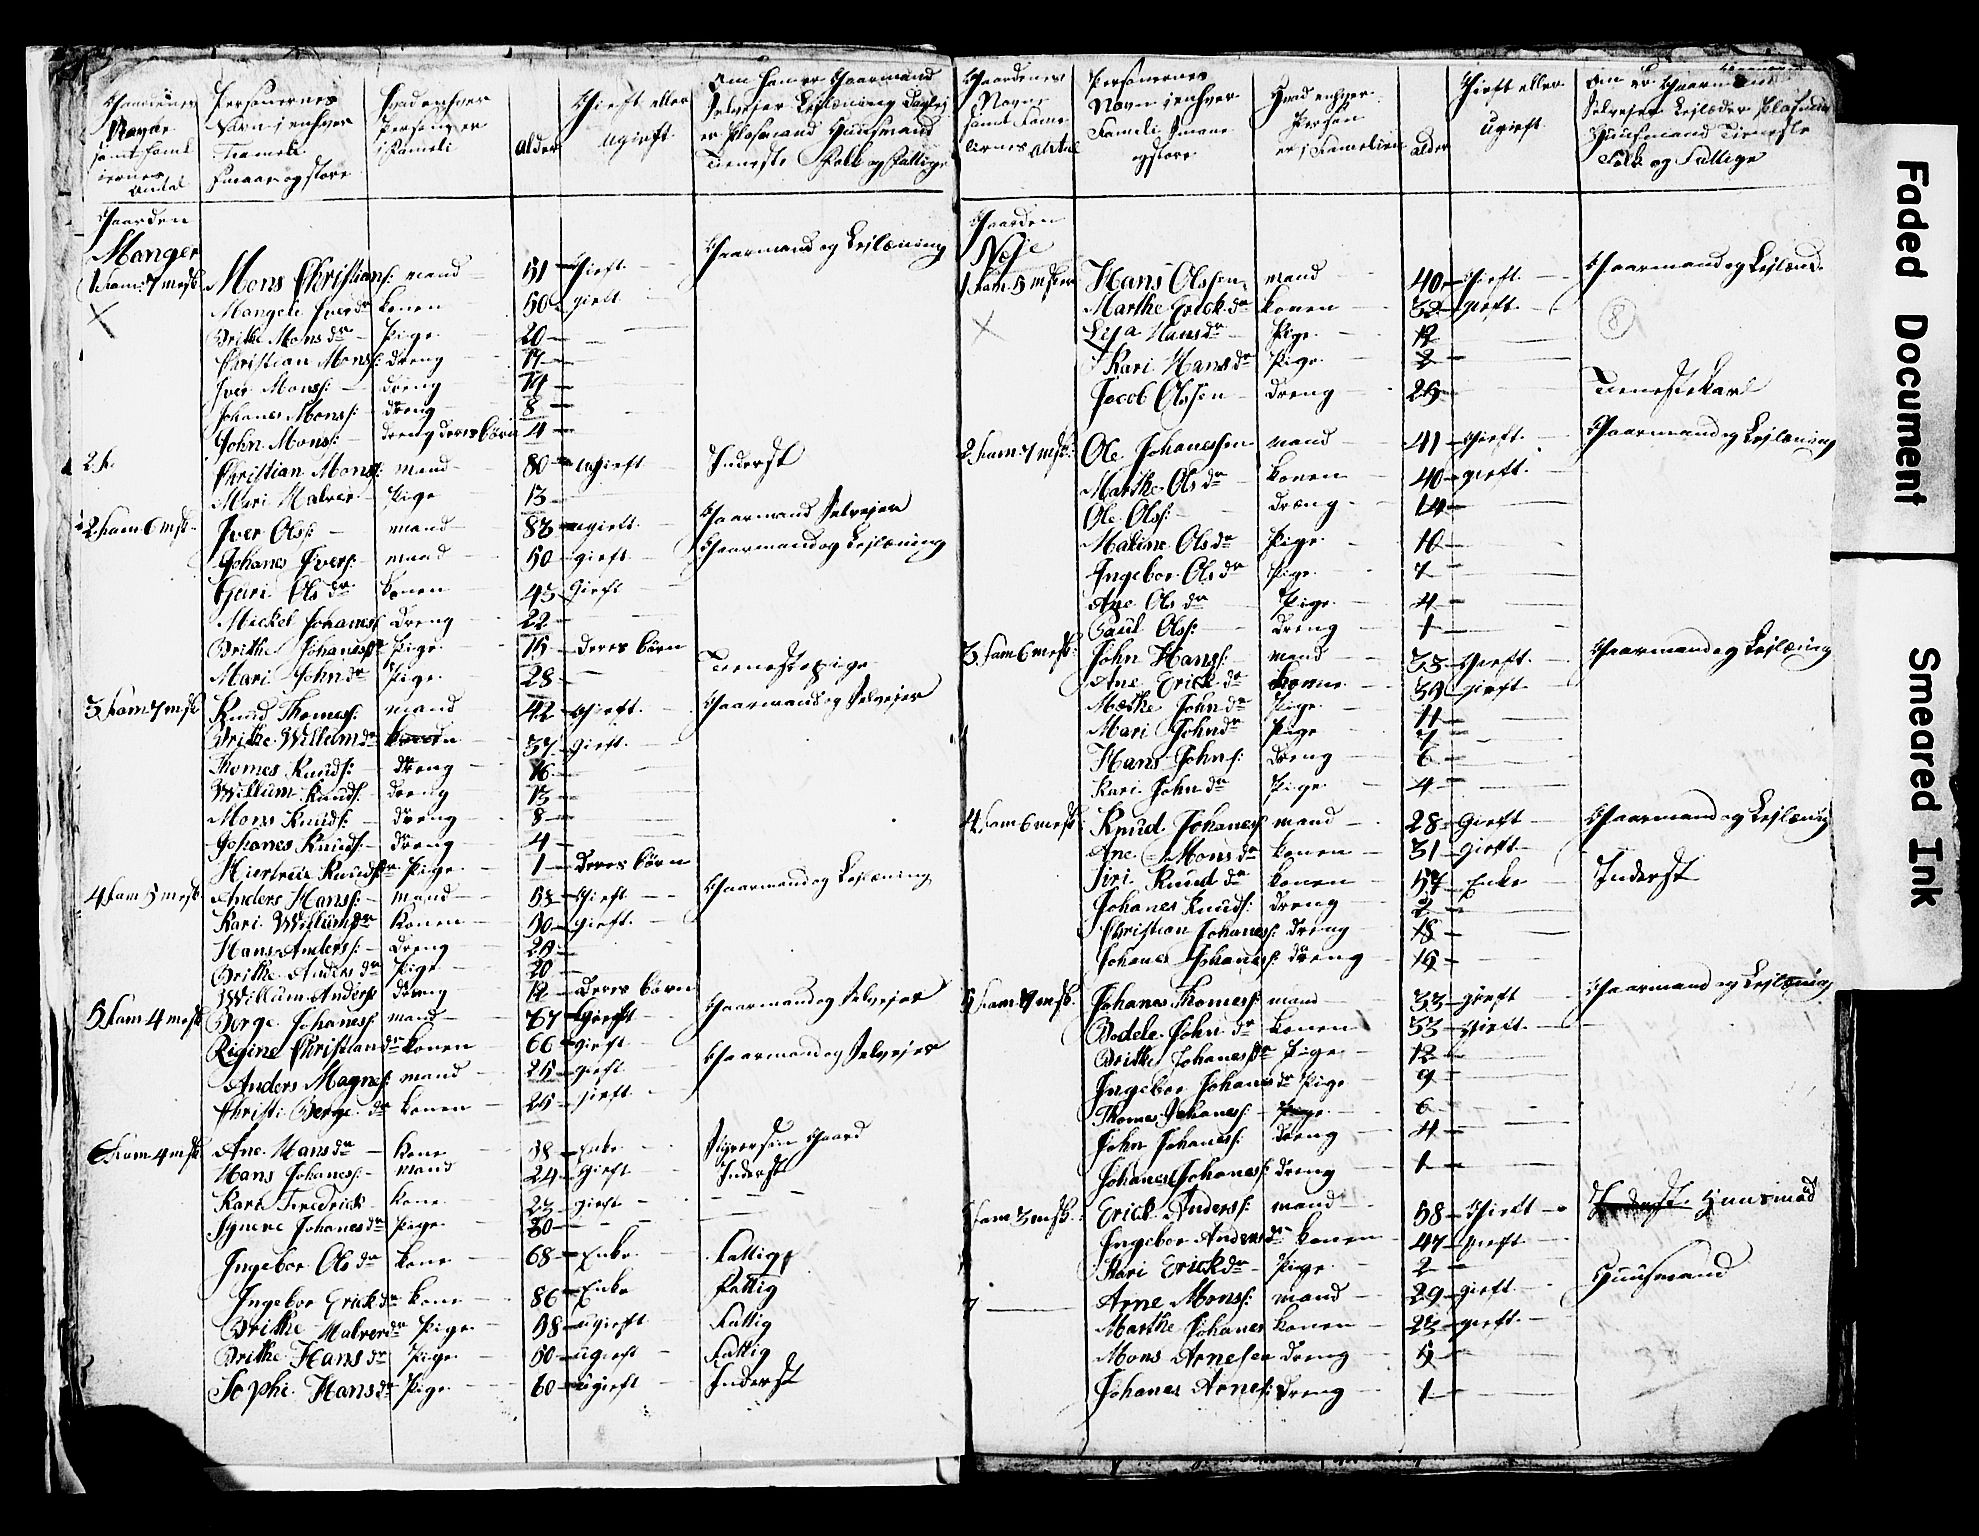 Gaardenes Navne samt Famileernes Antal
Personernes Navn i enhver Fameli Smaa og store
Hvad enhver Person er i Fameli
Alder
Gieft eller Ugieft
Om han er Gaarmand Selvejer Lejlæning
er Plasmand Huusmand
Tieneste Folk og Fattige
Gaarden
Manger
1 Fam: 7 mesk
Mons Christians: mand 51 Gieft Gaarmand og Lejlæning
Mangele Iversdr konen 50 gieft
Brithe Monsdr Pige 20
Christian Monss: dreng 17
Iver Monss: dreng 14
Johanes Monss: dreng 8
John Mons: dreng deres börn 4
2. f.
Christian Monss: mand 80 Ugieft Inderst
Mari Malver Pige 13
2 Fam 6 mesk
Iver Olss: mand 83 ugieft Gaarmand Selvejer
Johanes Ivers: mand 50 gieft Gaarmand og Lejlæning
Guri Olsdr konen 43 Gieft
Mickel Johaness: dreng 22
Brithe Johanesdr Pige 15 deres börn
Mari Johndr Pige 28 Tienestepige
3 Fam 7 mesk
Knud Thomess: mand 42 Gieft Gaarmand og Selvejer
Brithe Willumdr konen 37 gieft
Thomes Knuds: dreng 16
Willum Knuds: dreng 13
Mons Knuds: dreng 8
Johanes Knuds: dreng 4
Knudsdr Pige 1 Deres börn
4 Fam 5 mesk
Anders Hanss: mand 53 Gieft Gaarmand og Lejlæning
Kari Willumsdr konen 50 gieft
Hans Anderss: dreng 25
Brithe Andersdr Pige 20
Willum Anderss dreng 12 Deres börn
5 Fam 4 mesk
Berge Johaness: mand 67 Gieft Gaarmand og Selvejer
Regine Christiandr konen 66 gieft
Anders Magness: mand 25 gieft Gaarmand og Selvejer
Christi: Bergedr konen 25 gieft
6 Fam 4 mesk
Ane Hansdr kone 58 Enke Gaard
Hans Johaness: mand 24 gieft Inderst
Kari Fredrick kone 23 gieft
Johanesdr Pige 30
Ingebor Olsdr kone 68 Enke Fattig
Ingebor Erickdr kone 86 Enke Fattig
Brithe Malverdr Pige 58 ugieft Fattig
Brithe Hansdr Pige 50 ugieft Fattig
Sophi Hansdr Pige 60 ugieft Inderst
Gaardenes Navne samt Fameliernes Antal
Personernes Navn i enhver Fameli Smaae og store
Hvad enhver Person er i Famelien
Alder
Gieft eller Ugieft
Om er Gaarmand
Selvejer Lejlæder Plasmand
Huusmand Tieneste
Folk og Fattige
Gaarden
1 Fam 5 mesker
Hans Olssen mand 40 Gieft Gaarmand og Lejlænd
8
Marthe Erickdr konen 32 gieft
Hansdr Pige 12
Kari Hansdr Pige 2
Jacob Olssen dreng 25 Tienestekarl
2 Fam 7 mesk:
Ole Johanessen mand 41 Gieft Gaarmand og Lejlæning
Marthe Olsdr konen 40 gieft
Ole Olss: dreng 14
Maline Olsdr Pige 10
Ingebor Olsdr Pige 7
Ane Olsdr Pige 4
Paul Olss: dreng 1
3 Fam 6 mesk:
John Hanss: mand 33 Gieft Gaarmand og Lejlæning
Ane Erickdr konen gieft
Marthe Johndr Pige 11
Mari Johndr Pige 7
Hans Johns: dreng 6
Kari Johndr Pige 4
4 Fam 6 mesk:
Knud Johaness mand 28 Gieft Gaarmand og Lejlæning
Ane Monsdr konen 31 gieft
Siri Knuddr konen 57 Enke Inderst
Johanes Knuds: dreng 2
Christian Johaness: dreng 18
Johanes Johaness: dreng 15
5 Fam 7 mesk:
Johanes Thomess: mand 33 gieft Gaarmand og Lejlæning
Bodele Johndr konen 33 gieft
Brithe Johanesdr Pige 12
Ingebor Johanesdr Pige 9
Thomes Johaness: 6
John Johaness: dreng 4
Johanes Johaness: dreng 1
Fam 3 mesk:
Erick Anderss: mand 58 Gieft Inderst Huusmad
Ingebor Andersdr konen 47 gieft
Kari Erickdr Pige 2
7
Arne Monss: mand 29 gieft Huusmand
Marthe Johanes konen 23 gieft
Mons Arnesen dreng 5
Johanes Arness: dreng 1
Faded Document
Smeared Ink